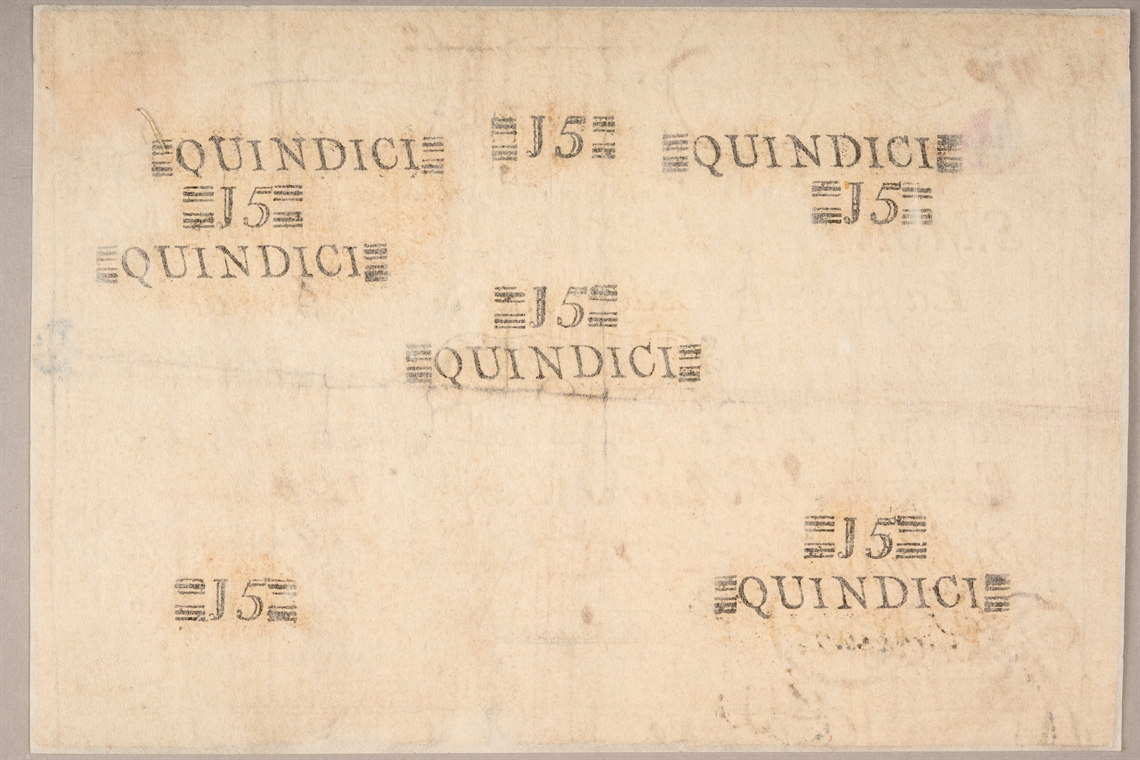 QUINDICI
J5
QUINDICI
J5
QUINDICI
J5
J5
QUINDICI
J5
J5
QUINDICI